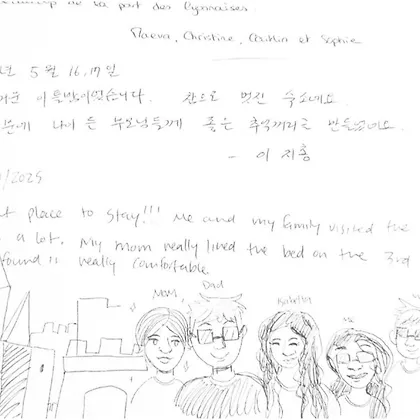 de la part des Lyonnaises.
Maeva, Christine, Caitlin et Sophie
년 5월 16, 17일
이틀밤이었습니다. 참으로 멋진 숙소네요.
나이 든 부모님들께 좋은 추억꺼리를 만들었네요.
- 이지홍
/2025
place to stay!!! Me and my family visited the
a lot. My mom really liked the bed on the 3rd
found is really comfortable
Mom
Dad
Me